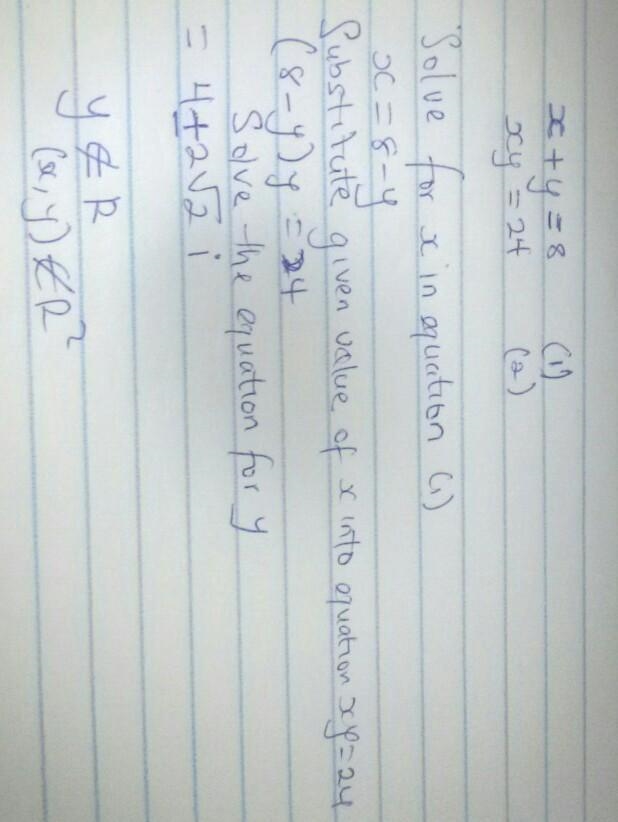 x + y = 8 (1)
xy = 24 (2)
Solve for x in equation (1)
x = 8 - y
Substitute given value of x into equation xy = 24
(8 - y) y = 24
Solve the equation for y
= 4 ± 2√2 i
y ∉ R
(x, y) ∉ R²